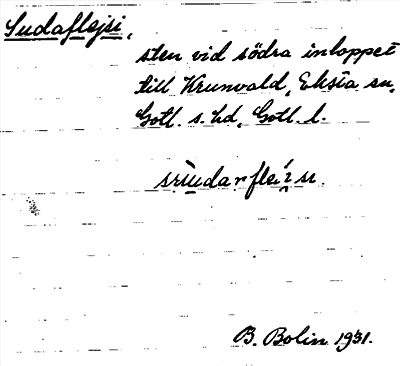 Sudaflejsi,
sten vid södra inloppet
till Krunvald, Eksta sn,
Gotl. s. hd, Gotl. l.
B. Bolin 1931.